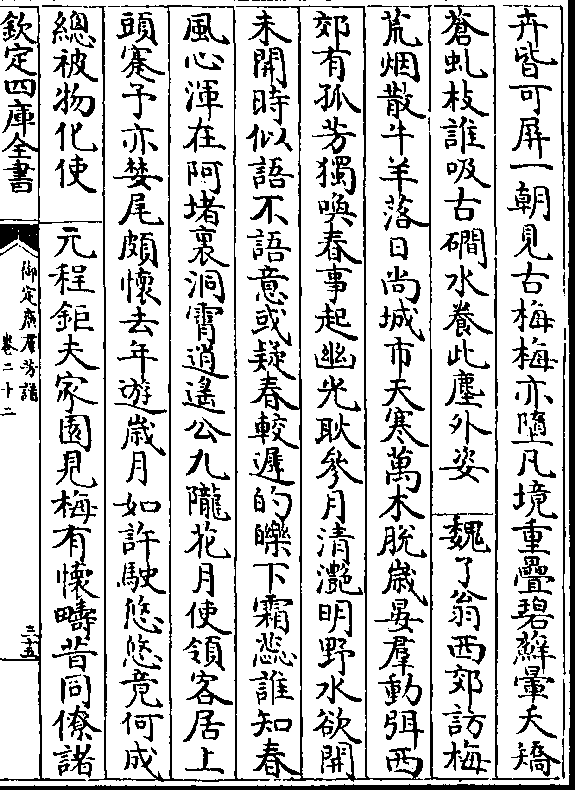 卉皆可屏一朝見古梅梅亦墮凡境重疊碧蘚暈夭矯
蒼虬枝誰吸古磵水養此塵外姿　魏了翁西郊訪梅
荒烟散牛羊落日尚城市天寒萬木脫歲晏羣動弭西
郊有孤芳獨喚春事起幽光耿參月清灔明野水欲開
未開時似語不語意或疑春較遲的皪下霜蕊誰知春
風心渾在阿堵裏洞霄逍遙公九隴花月使領客居上
頭蹇予亦婪尾頗懷去年遊歲月如許駛悠悠竟何成
總被物化使　元程鉅夫家園見梅有懷疇昔同僚諸
欽定四庫全書
御定廣羣芳譜
卷二十二
三十五